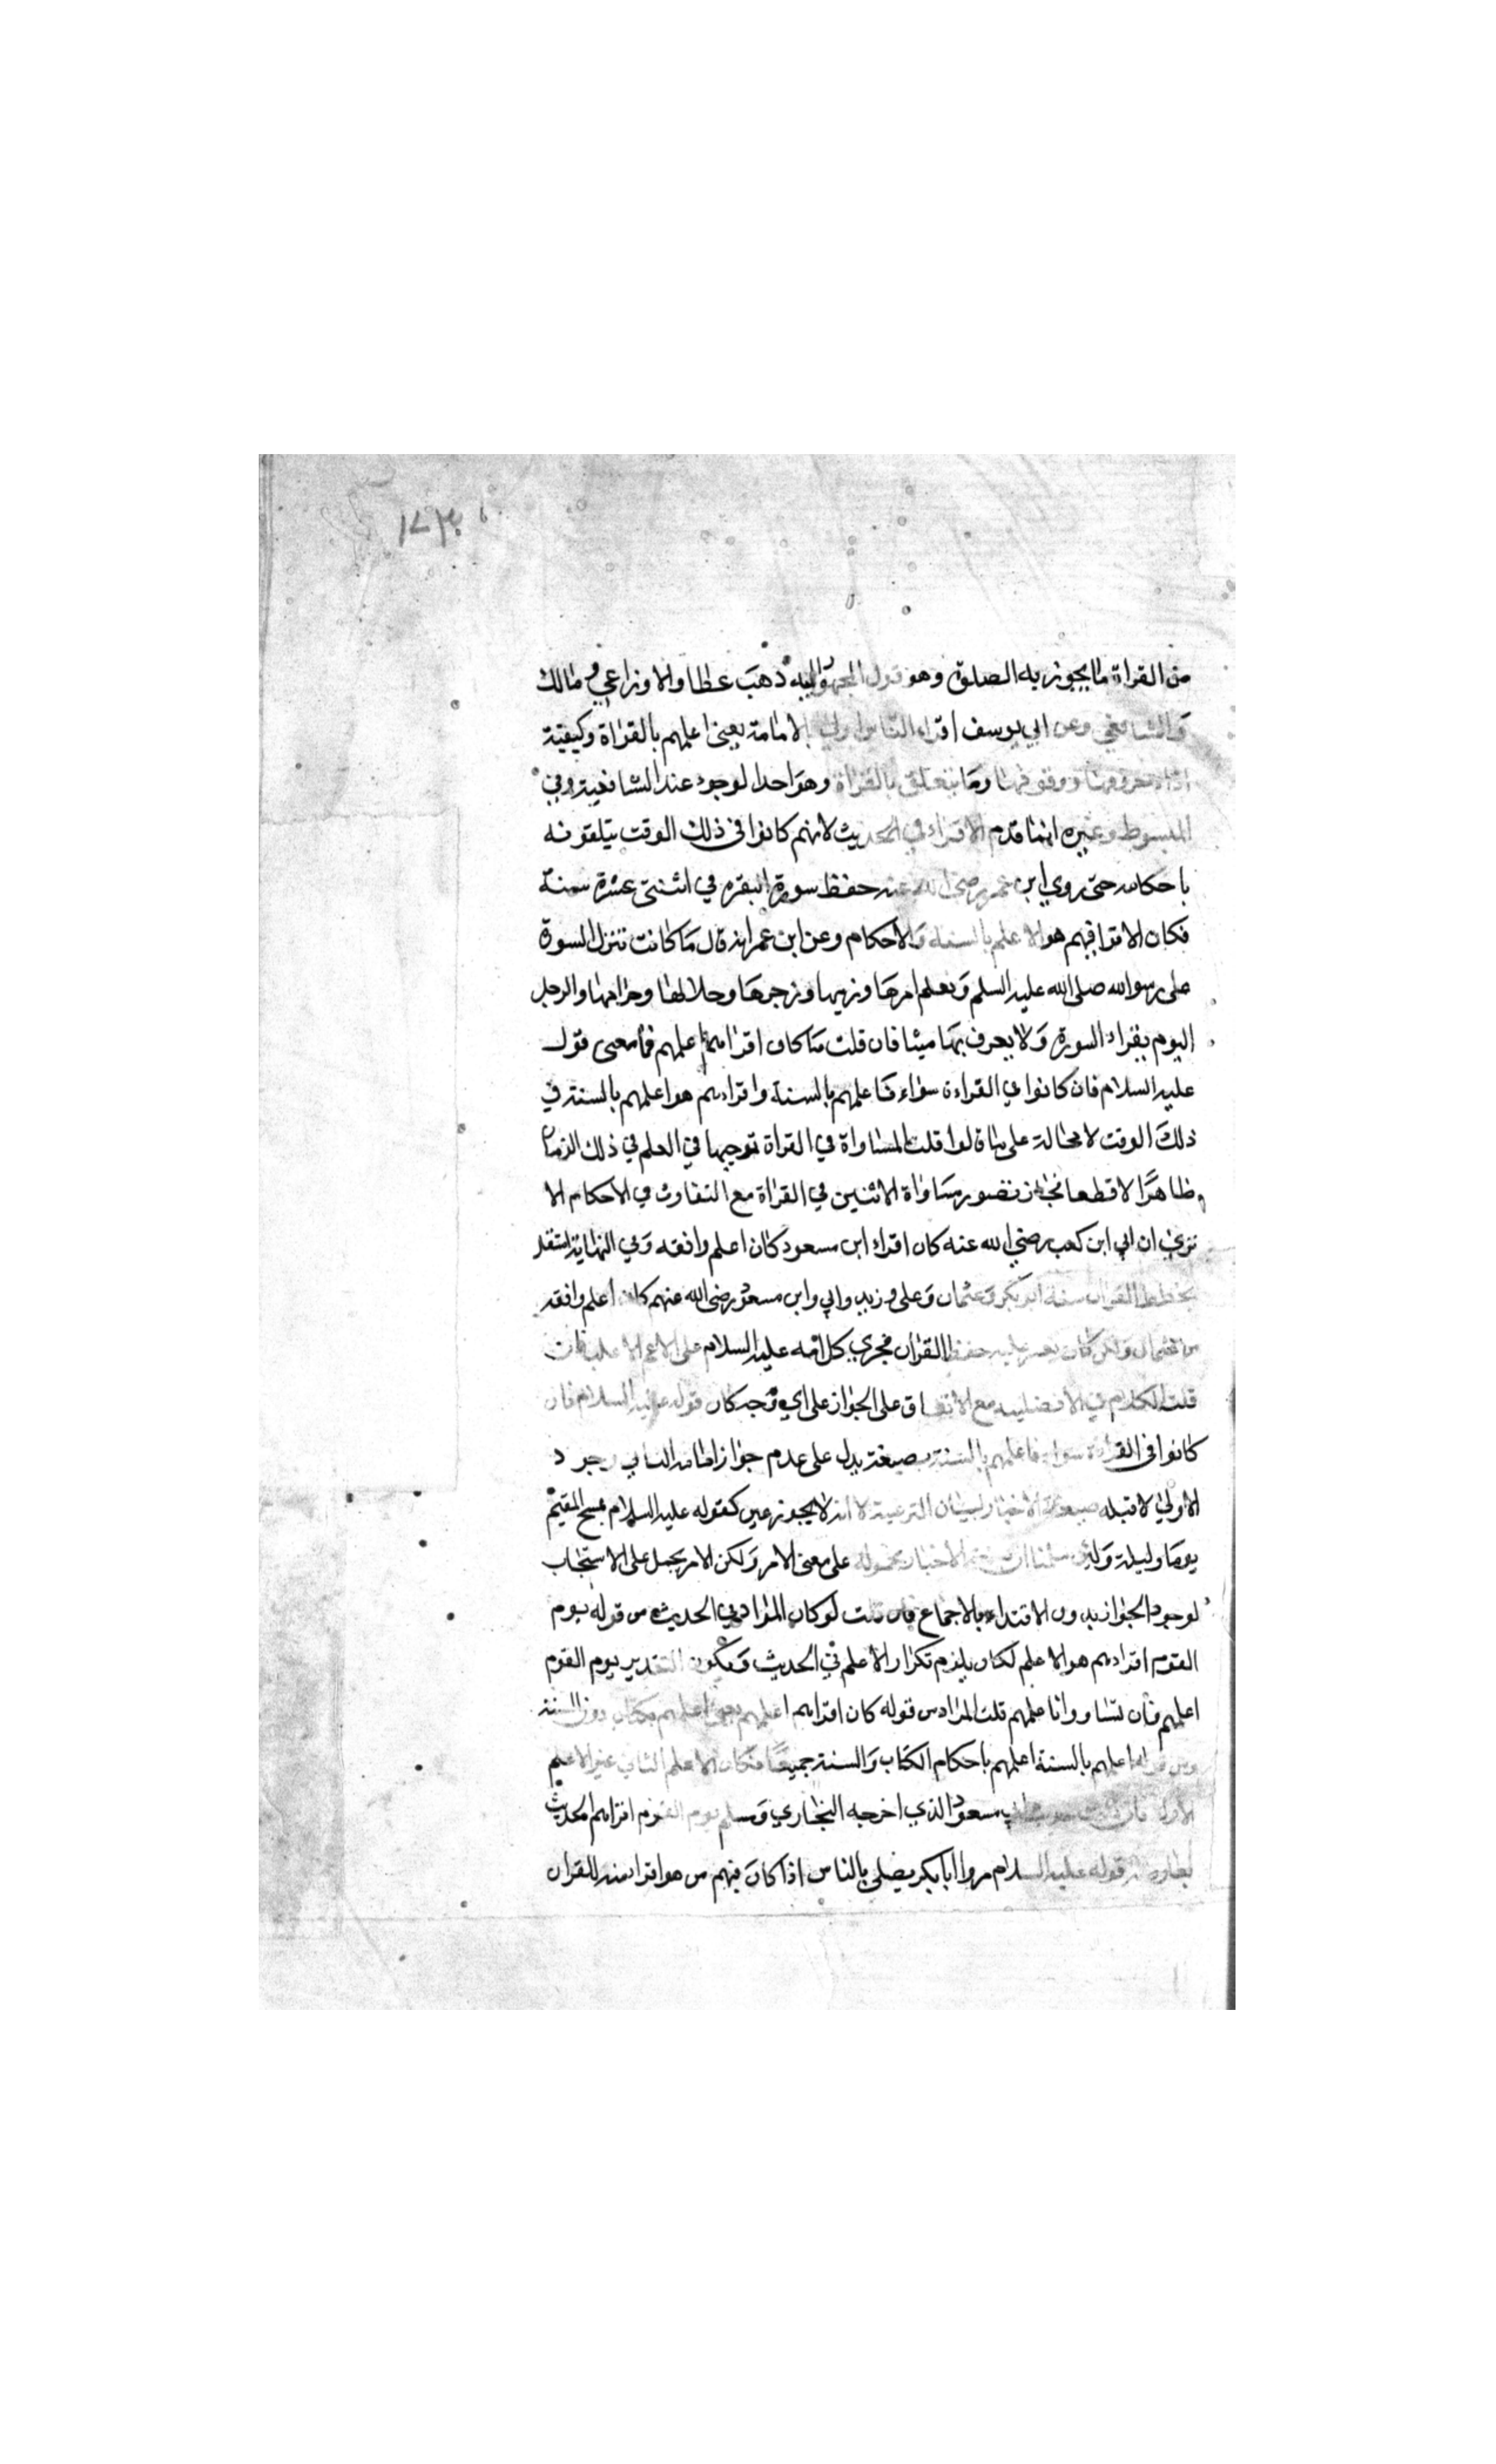 ١٧٣
من القراة ما يجوز به الصلوة وهو قول الجمهور واليه ذهب عطا والاوزاعي ومالك
والشافعي وعن ابي يوسف اقراء الناس اولى بالامامة يعني اعلمهم بالقراة وكيفية
اداء حروفها ووقوفها وما يتعلق بالقراة وهو احد الوجوه عند الشافعية وفي
المبسوط وغيره انما قدم الاقراء في الحديث لانهم كانوا في ذلك الوقت يتلقونه
باحكامه حتى روي ابن عمر رضى الله عنه حفظ سورة البقره في اثنتى عشرة سنة
فكان الاقرا فيهم هو الاعلم بالسنة والاحكام وعن ابن عمر انه قال ما كانت تنزل السورة
على رسوالله صلى الله عليه السلم ونعلم امرها ونهيها وزجرها وحلالها وحرامها والرجل
اليوم يقراء السورة ولا يعرف بها ميثا فان قلت متا كان اقراهم اعلمهم فما معنى قول
عليه السلام فان كانوا في القراءة سواء فاعلمهم بالسنة واقراءهم هو اعلمهم بالسنة في
ذلك الوقت لا محالة على قلت المساواة في القراة توجبها في العلم في ذلك الزمان
ظاهرا لا قطعا فجاز تصور مساواة الاثنين في القراة مع التفاوت في الاحكام الا
تري ان ابي ابن كعب رضي الله عنه كان اقراء ابن مسعود كان اعلم وافقه وفي النهاية استقل
بحفظ القران ستة ابو بكر وعثمان وعلى وزيد وابي وابن مسعود رضى الله عنهم كان اعلم وافقه
من عثمان ولكن كان يعسر عليه حفظ القران فجري كلامه عليه السلام على الاعم الاغلب فان
قلت الكلام في الافضليه مع الاتفاق على الجواز على اي وجه كان قوله عليه السلام فان
كانوا في القراءة سواء فاعلمهم بالسنة بصيغة يدل على عدم جواز امامة الثاني وجود
الاولي لا قبله صيغة الاخبار لبيان الترعية لا انه لا يجوز غير كقوله عليه السلام يمسح المقيم
يوما وليلة ولئن سلمنا ان صيغة الاخبار محموله على معنى الامر ولكن الامر يحمل على الاستحباب
لوجود الجواز بدون الاقتداء بالاجماع فان قلت لو كان المراد في الحديث من قوله يوم
القوم اقراءهم هو الاعلم لكان يلزم تكرار الاعلم في الحديث ويكون التقدير يوم القوم
اعلمهم فان تساووا فاعلمهم قلت المراد من قوله كان اقراهم اعلمهم يعني اعلمهم بكتاب دون السنة
ومن قوله اعلمهم بالسنة اعلمهم باحكام الكتاب والسنة جميعا فكان الاعلم الثاني غير الاعلم
الاول فان قلت حديث ابي مسعود الذي اخرجه البخاري ومسلم يوم القوم اقراهم الحديث
يعارضه قوله عليه السلام مروا ابا بكر يصلى بالناس اذا كان فيهم من هو اقرا منه للقران